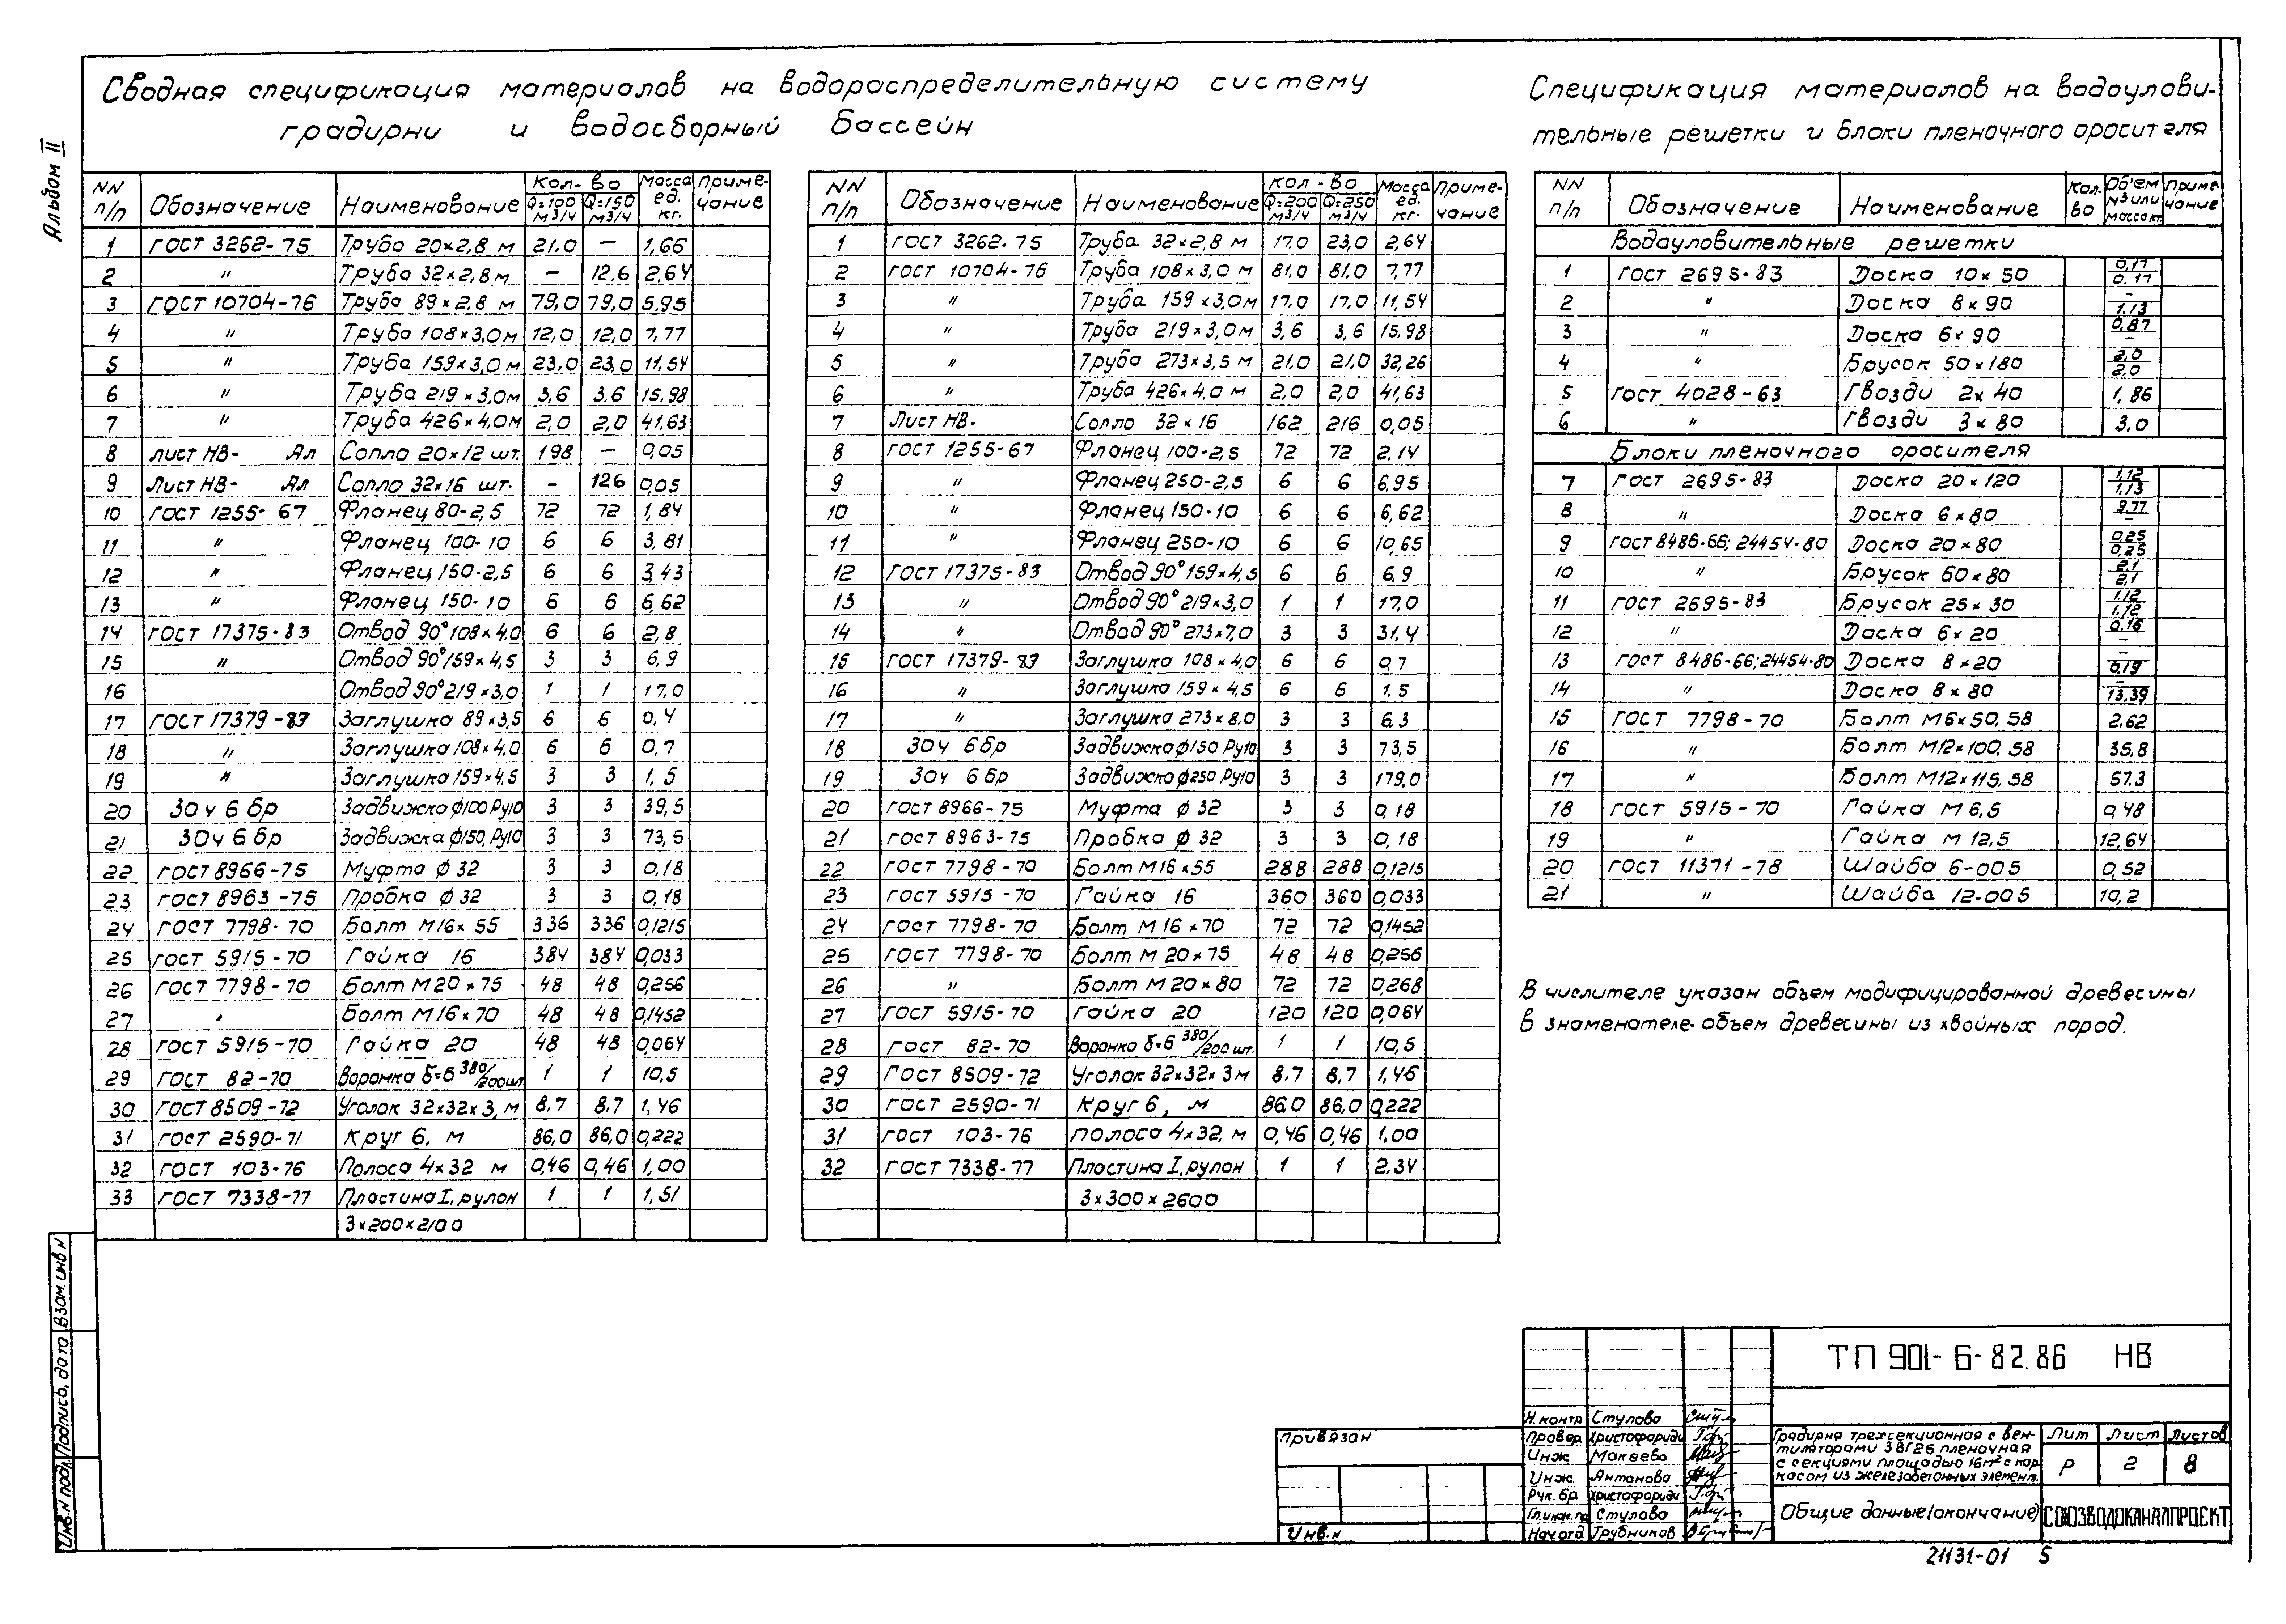 Альбом II
Сводная спецификация материалов на водораспределительную систему
градирни и водосборный бассейн
NN п/п Обозначение Наименование Кол-во Q=100 м³/ч Q=150 м³/ч Масса ед. кг. Приме-чание
1 ГОСТ 3262-75 Труба 20×2,8 м 21.0 — 1,66
2 " Труба 32×2,8 м — 12.6 2,64
3 ГОСТ 10704-76 Труба 89×2,8 м 79,0 79,0 5,95
4 " Труба 108×3,0 м 12,0 12,0 7,77
5 " Труба 159×3,0 м 23,0 23,0 11,54
6 " Труба 219×3,0 м 3,6 3,6 15.98
7 " Труба 426×4,0 м 2,0 2,0 41,63
8 Лист НВ- Ал Сопло 20×12 шт. 198 — 0,05
9 Лист НВ- Ал Сопло 32×16 шт. - 126 0,05
10 ГОСТ 1255-67 Фланец 80-2,5 72 72 1,84
11 " Фланец 100-10 6 6 3,81
12 " Фланец 150-2,5 6 6 3,43
13 " Фланец 150-10 6 6 6,62
14 ГОСТ 17375-83 Отвод 90° 108×4,0 6 6 2,8
15 " Отвод 90° 159×4,5 3 3 6,9
16 Отвод 90° 219×3,0 1 1 17,0
17 ГОСТ 17379-83 Заглушка 89×3,5 6 6 0,4
18 " Заглушка 108×4,0 6 6 0,7
19 " Заглушка 159×4,5 3 3 1,5
20 30ч 6 бр Задвижка ф100 Ру10 3 3 39,5
21 30ч 6 бр Задвижка ф150, Ру10 3 3 73,5
22 ГОСТ 8966-75 Муфта ф 32 3 3 0,18
23 ГОСТ 8963-75 Пробка ф 32 3 3 0,18
24 ГОСТ 7798-70 Болт М16×55 336 336 0,1215
25 ГОСТ 5915-70 Гайка 16 384 384 0,033
26 ГОСТ 7798-70 Болт М20×75 48 48 0,256
27 " Болт М16×70 48 48 0,1452
28 ГОСТ 5915-70 Гайка 20 48 48 0,064
29 ГОСТ 82-70 Воронка δ=6 380/200 шт 1 1 10,5
30 ГОСТ 8509-72 Уголок 32×32×3, м 8.7 8.7 1,46
31 ГОСТ 2590-71 Круг 6, м 86,0 86,0 0,222
32 ГОСТ 103-76 Полоса 4×32 м 0,46 0,46 1,00
33 ГОСТ 7338-77 Пластина I, рулон 1 1 1,51
3×200×2100
NN п/п Обозначение Наименование Кол-во Q=200 м³/ч Q=250 м³/ч Масса ед. кг. Приме-чание
1 ГОСТ 3262-75 Труба 32×2,8 м 17,0 23,0 2,64
2 ГОСТ 10704-76 Труба 108×3,0 м 81,0 81,0 7,77
3 " Труба 159×3,0 м 17,0 17,0 11,54
4 " Труба 219×3,0 м 3,6 3,6 15.98
5 " Труба 273×3,5 м 21,0 21,0 32,26
6 " Труба 426×4,0 м 2,0 2,0 41,63
7 Лист НВ- Сопло 32×16 162 216 0,05
8 ГОСТ 1255-67 Фланец 100-2,5 72 72 2,14
9 " Фланец 250-2,5 6 6 6,95
10 " Фланец 150-10 6 6 6,62
11 " Фланец 250-10 6 6 10,65
12 ГОСТ 17375-83 Отвод 90° 159×4,5 6 6 6,9
13 " Отвод 90° 219×3,0 1 1 17,0
14 " Отвод 90° 273×7,0 3 3 31,4
15 ГОСТ 17379-83 Заглушка 108×4,0 6 6 0,7
16 " Заглушка 159×4,5 6 6 1.5
17 " Заглушка 273×8,0 3 3 6.3
18 30ч 6 бр Задвижка ф150 Ру10 3 3 73,5
19 30ч 6 бр Задвижка ф250 Ру10 3 3 179,0
20 ГОСТ 8966-75 Муфта ф 32 3 3 0,18
21 ГОСТ 8963-75 Пробка ф 32 3 3 0,18
22 ГОСТ 7798-70 Болт М16×55 288 288 0,1215
23 ГОСТ 5915-70 Гайка 16 360 360 0,033
24 ГОСТ 7798-70 Болт М16×70 72 72 0,1452
25 ГОСТ 7798-70 Болт М20×75 48 48 0,256
26 " Болт М20×80 72 72 0,268
27 ГОСТ 5915-70 Гайка 20 120 120 0,064
28 ГОСТ 82-70 Воронка δ=6 380/200 шт. 1 1 10,5
29 ГОСТ 8509-72 Уголок 32×32×3 м 8.7 8,7 1,46
30 ГОСТ 2590-71 Круг 6, м 86.0 86,0 0,222
31 ГОСТ 103-76 Полоса 4×32, м 0,46 0,46 1,00
32 ГОСТ 7338-77 Пластина I, рулон 1 1 2,34
3×300×2600
Спецификация материалов на водоулови-
тельные решетки и блоки пленочного оросителя
NN п/п Обозначение Наименование Кол. во Об'ем м³ или масса кг. Приме-чание
Водауловительные решетки
1 ГОСТ 2695-83 Доска 10×50 0,17/0,17
2 " Доска 8×90 -/1,13
3 " Доска 6×90 0,87/-
4 " Брусок 50×180 2,0/2,0
5 ГОСТ 4028-63 Гвозди 2×40 1,86
6 " Гвозди 3×80 3,0
Блоки пленочного оросителя
7 ГОСТ 2695-83 Доска 20×120 1,12/1,13
8 " Доска 6×80 9,77/-
9 ГОСТ 8486-66; 24454-80 Доска 20×80 0,25/0,25
10 " Брусок 60×80 2,1/2,1
11 ГОСТ 2695-83 Брусок 25×30 1,12/1,12
12 " Доска 6×20 0,16/-
13 ГОСТ 8486-66; 24454-80 Доска 8×20 -/0,19
14 " Доска 8×80 -/13,39
15 ГОСТ 7798-70 Болт М6×50,58 2,62
16 " Болт М12×100,58 35,8
17 " Болт М12×115,58 57.3
18 ГОСТ 5915-70 Гайка М 6,5 0,48
19 " Гайка М 12,5 12,64
20 ГОСТ 11371-78 Шайба 6-005 0,52
21 " Шайба 12-005 10,2
В числителе указан объем модифицированной древесины
в знаменателе-объем древесины из хвойных пород.
Инв.N подл. Подпись, дата Взам. инв N
Привязан
Инв.N
Н.контр Стулова
Провер. Христофориди
Инж. Макеева
Инж. Антонова
Рук. бр. Христофориди
Гл.инж.пр Стулова
Нач отд. Трубников
ТП 901-6-82.86 НВ
Градирня трехсекционная с вен-
тиляторами 3ВГ26 пленочная
с секциями площадью 16м² с кар
касом из железобетонных элемент.
Лит Лист Листов
Р 2 8
Общие данные (окончание)
СОЮЗВОДОКАНАЛПРОЕКТ
21131-01 5